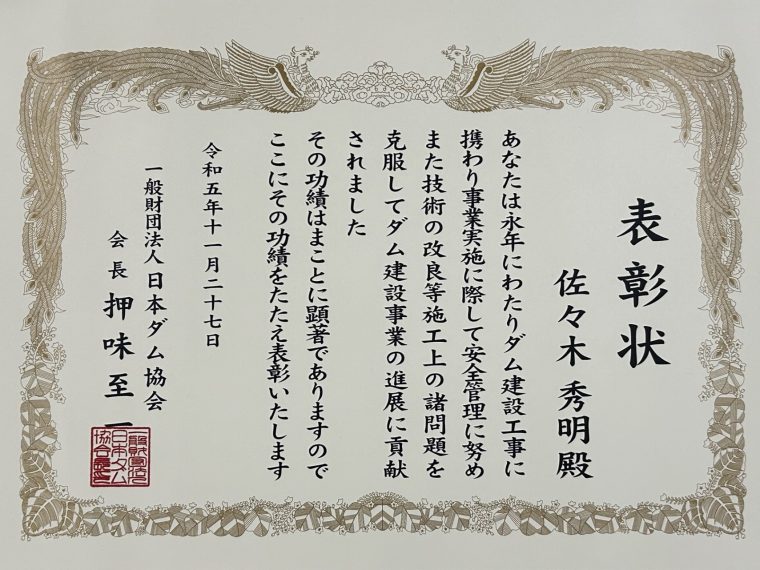 表彰状
佐々木秀明殿
あなたは永年にわたりダム建設工事に
携わり事業実施に際して安全管理に努め
また技術の改良等施工上の諸問題を
克服してダム建設事業の進展に貢献
されました
その功績はまことに顕著でありますので
ここにその功績をたたえ表彰いたします
令和五年十一月二十七日
一般財団法人日本ダム協会
会長 押味至一